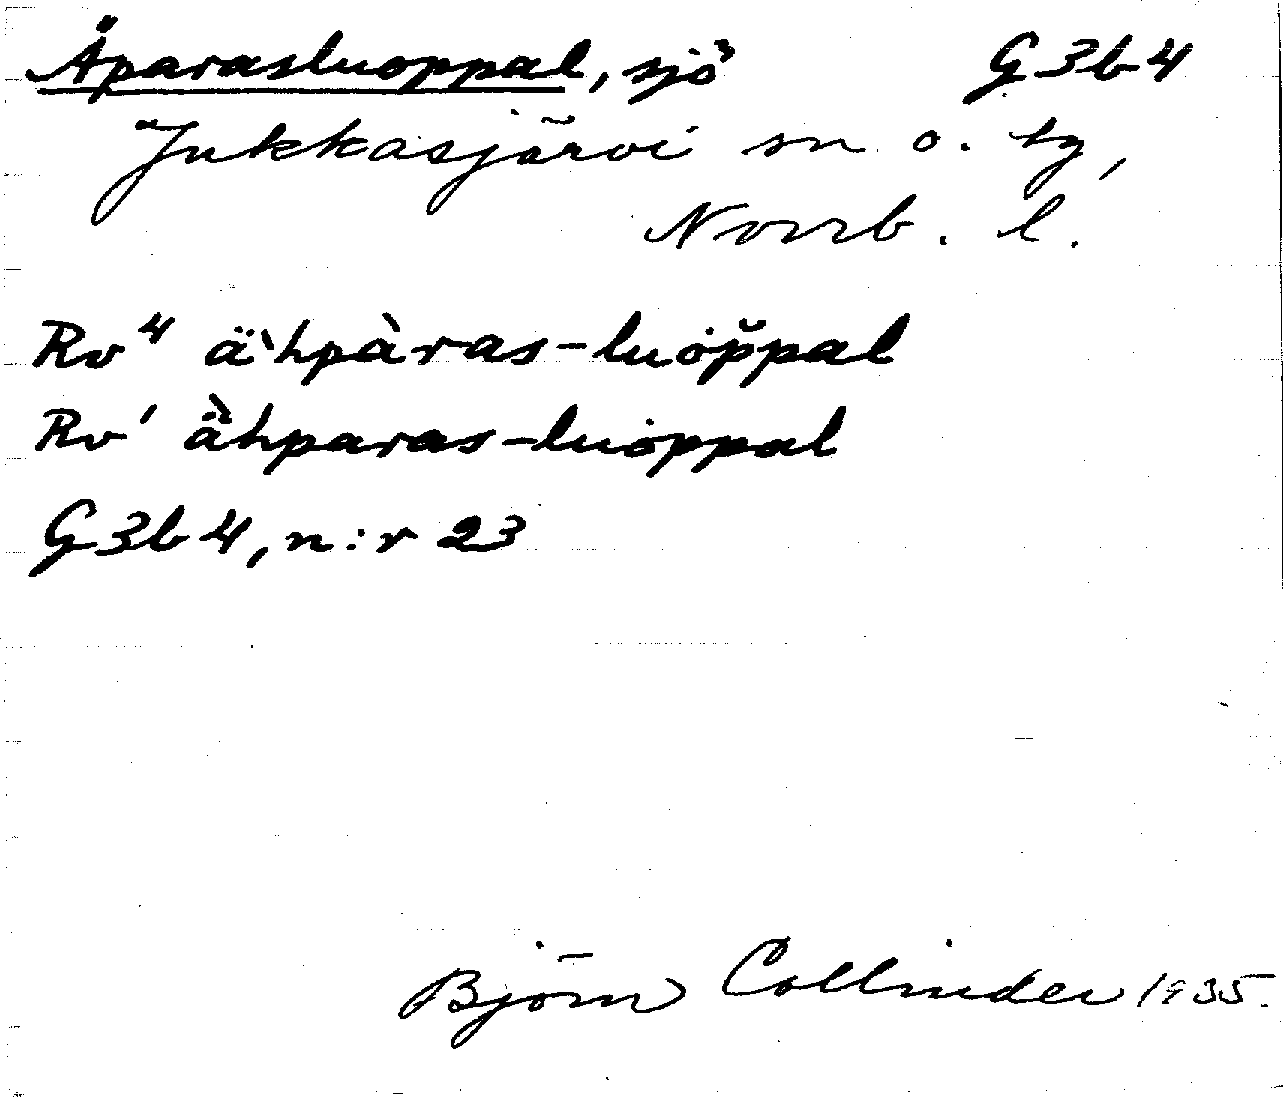 Äparasluoppal, sjö G3b4
Jukkasjärvi sn o. tg,
Norrb. l.
Rv⁴ ä̀hpàras-luop̌pal
Rv' ä̀hparas-luoppal
G3b4, n:r 23
Björn Collinder 1935.